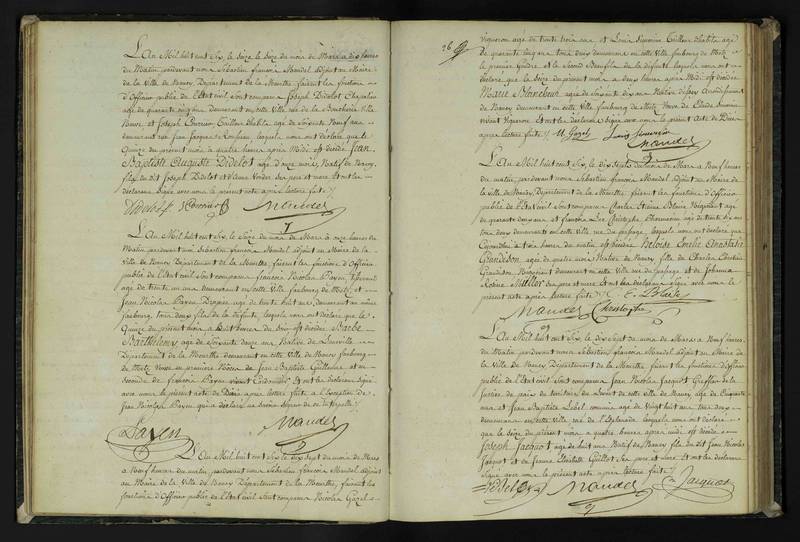 L'An Mil huit cent Six, le Seize du mois de Mars a dix heures
du Matin pardevant nous Sébastien françois Mandel adjoint au Maire
de la Ville de Nancy Département de la Meurthe faisant les fonctions
d'Officier public de l'Etat civil Sont comparus Joseph Didelot
agé de quarante demeurant en cette Ville rue de la
et Joseph Tailleur d'habits agé de Soixante Neuf ans
demeurant rue Jean Jacques Rousseau lesquels nous ont déclaré que le
Quinze du présent mois à quatre heures après Midi est décédé Jean
Baptiste Auguste Didelot agé d'onze mois, Natif de Nancy
fils du dit Joseph Didelot et ses père et mère Et ont les
déclarans Signé avec nous le présent acte après lecture faite.
Didelot Mandel
L'An Mil huit cent Six, le Seize du mois de Mars à onze heures du
Matin pardevant nous Sébastien françois Mandel adjoint au Maire de la
Ville de Nancy Département de la Meurthe, faisant les fonctions d'Officier
public de l'Etat civil Sont comparus françois Nicolas Payen,
agé de trente un ans demeurant en cette Ville faubourg de Metz, et
Jean Nicolas Payen agé de trente huit ans, demeurant au même
faubourg, tous deux fils de la défunte, lesquels nous ont déclaré que le
Quinze du présent mois à huit heures du Soir est décédée Barbe
Barthelemy agée de Soixante douze ans Native de Luneville
Département de la Meurthe demeurant en cette Ville de Nancy faubourg
de Metz Veuve en première Noces de Jean Baptiste Guillaume et en
seconde de françois Payen vivant Cordonnier, Et ont les déclarans Signé
avec nous le présent acte de Décès après lecture faite à l'exception de
Jean Nicolas Payen qui a déclaré ne savoir Signer de ce interpellé.
Payen Mandel
L'An Mil huit cent Six le dix Sept du mois de Mars
a Neuf heures du matin, pardevant nous Sébastien françois Mandel adjoint
au Maire de la Ville de Nancy Département de la Meurthe, faisant les
fonctions d'Officier public de l'Etat civil Sont comparus Nicolas Gazel
Vigneron agé de trente trois ans et Louis Tailleur d'habits agé
de quarante cinq ans tous deux demeurans en cette Ville faubourg de Metz,
le premier Gendre et le Second Beaufils de la défunte lesquels nous ont
déclaré que le Seize du présent mois a deux heures après Midi est décédée
Marie Blancheur agée de Soixante dix ans Native
de Nancy demeurant en cette Ville faubourg de Metz Veuve de Claude
vivant Vigneron. Et ont les déclarans Signé avec nous le présent Acte de Décès
après lecture faite. N Gazel Louis
Mandel
L'An Mil huit cent Six, le dix Sept du mois de Mars a Neuf heures
du matin, pardevant nous Sébastien françois Mandel adjoint au Maire de
la Ville de Nancy, Département de la Meurthe faisant les fonctions d'Officier
public de l'Etat civil Sont comparus Charles Etienne Négociant agé
de quarante deux ans et françois Christophe agé de trente Six ans
tous deux demeurans en cette Ville rue du passage, lesquels nous ont déclaré que
à trois heures du matin est décédée Heloïse Emelie Anastasie
Grandidon, agée de quatre mois Native de Nancy, fille de Charles
Grandidon, Négociant demeurant en cette Ville rue du passage et de Johanna
Müller ses père et mère Et ont les déclarans Signé avec nous le
présent acte après lecture faite.
Mandel Christophe
L'An Mil huit cent Six, le dix Sept du mois de Mars a Neuf heures
du matin, pardevant nous Sébastien françois Mandel adjoint au Maire de
la Ville de Nancy Département de la Meurthe faisant les fonctions d'Officier
public de l'Etat civil Sont comparus Jean Nicolas Jacquot Greffier de la
Justice de paix du territoire du de cette ville de Nancy, agé de Cinquante
ans et Jean Baptiste Lebel commis agé de Vingt huit ans tous deux
demeurans en cette Ville rue de l'Esplanade lesquels nous ont déclaré
que le Seize du présent mois a quatre heures après midi est décédé
Joseph Jacquot agé de huit ans Natif de Nancy fils du dit Jean Nicolas
Jacquot et de Jeanne Elisabeth Guillot Ses père et mère. Et ont les déclarans
Signé avec nous le présent acte après lecture faite.
Lebel Mandel Jacquot